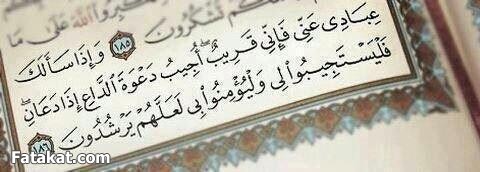 كُمْ تَشْكُرُونَ ١٨٥ وَإِذَا سَأَلَكَ
عِبَادِي عَنِّي فَإِنِّي قَرِيبٌ ۖ أُجِيبُ دَعْوَةَ الدَّاعِ إِذَا دَعَانِ ۖ
فَلْيَسْتَجِيبُوا لِي وَلْيُؤْمِنُوا بِي لَعَلَّهُمْ يَرْشُدُونَ ١٨٦
Fatakat.com